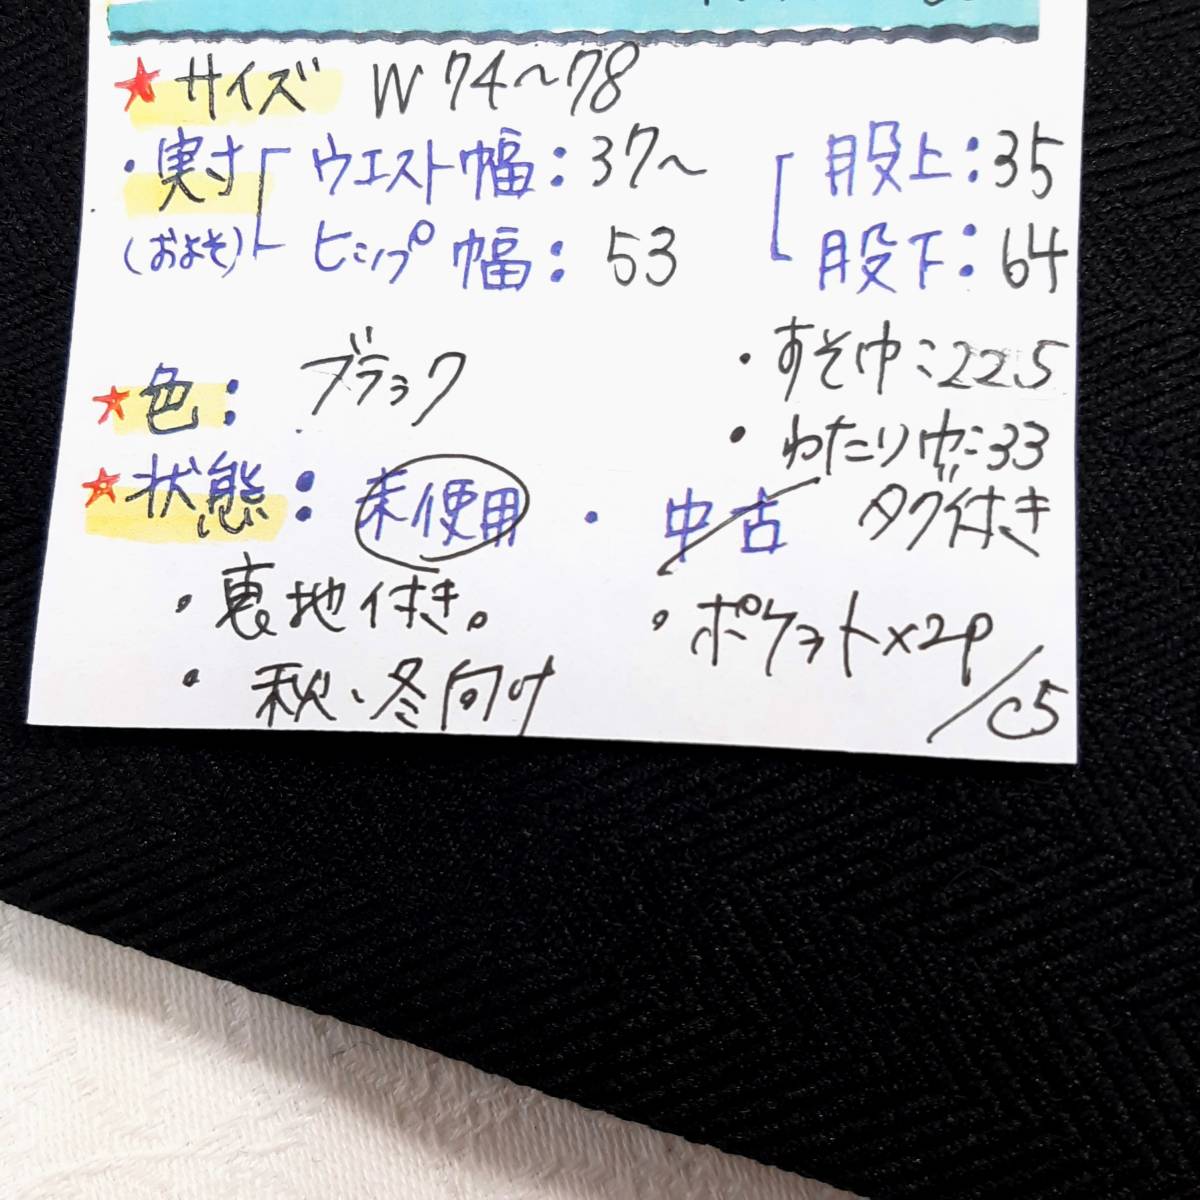 ★サイズ W74〜78
・実寸 ウエスト幅：37〜
(およそ) ヒップ幅：53
股上：35
股下：64
・すそ巾：22.5
・わたり巾：33
★色： ブラック
★状態：未使用・中古 タグ付き
・裏地付き。
・ポケット×2P
・秋、冬向け
/C5